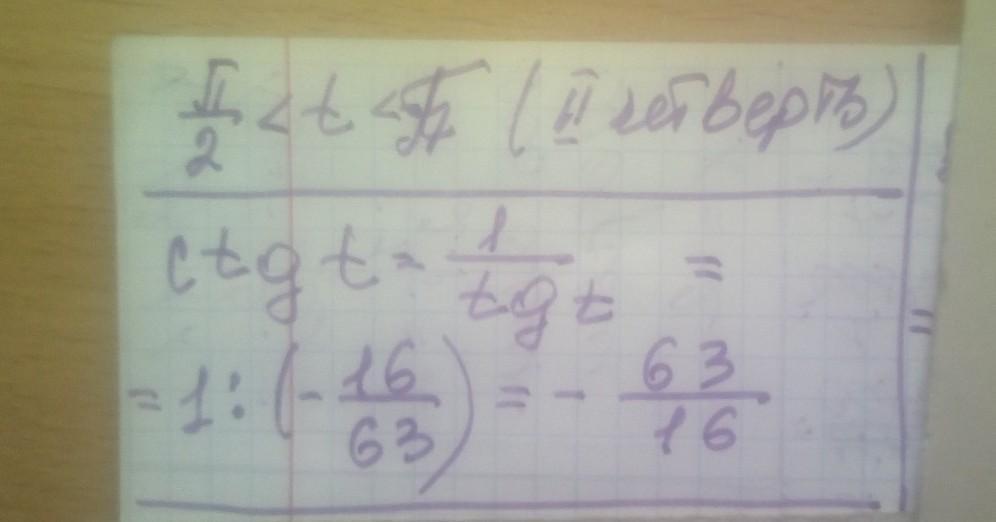 π/2 < t < π (II четверть)
ctg t = 1/tg t =
= 1 : (- 16/63) = - 63/16
=